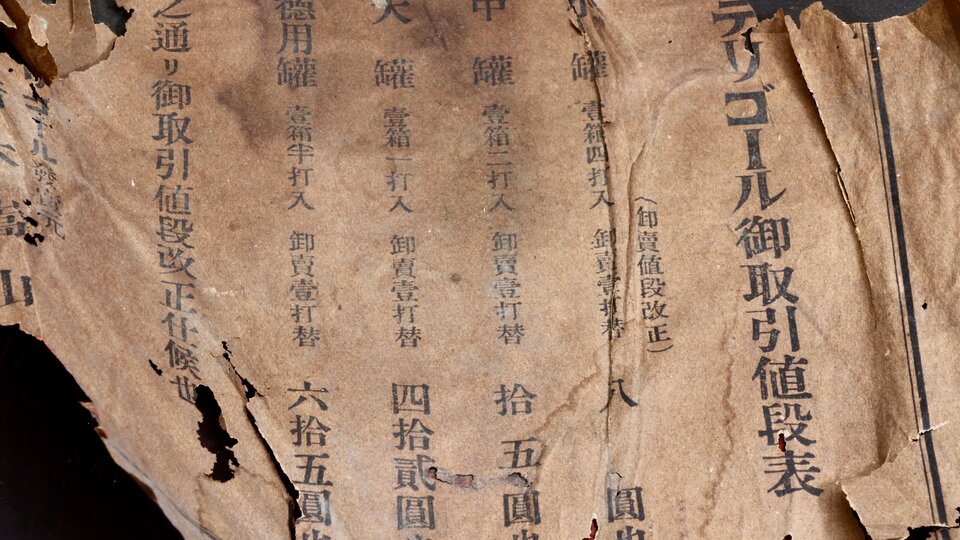 テリゴール御取引値段表
（卸賣値段改正）
小罐 壹箱四打入 卸賣壹打替 八圓也
中罐 壹箱二打入 卸賣壹打替 拾五圓也
大罐 壹箱一打入 卸賣壹打替 四拾貳圓也
德用罐 壹箱半打入 卸賣壹打替 六拾五圓也
之通リ御取引値段改正仕候也
山